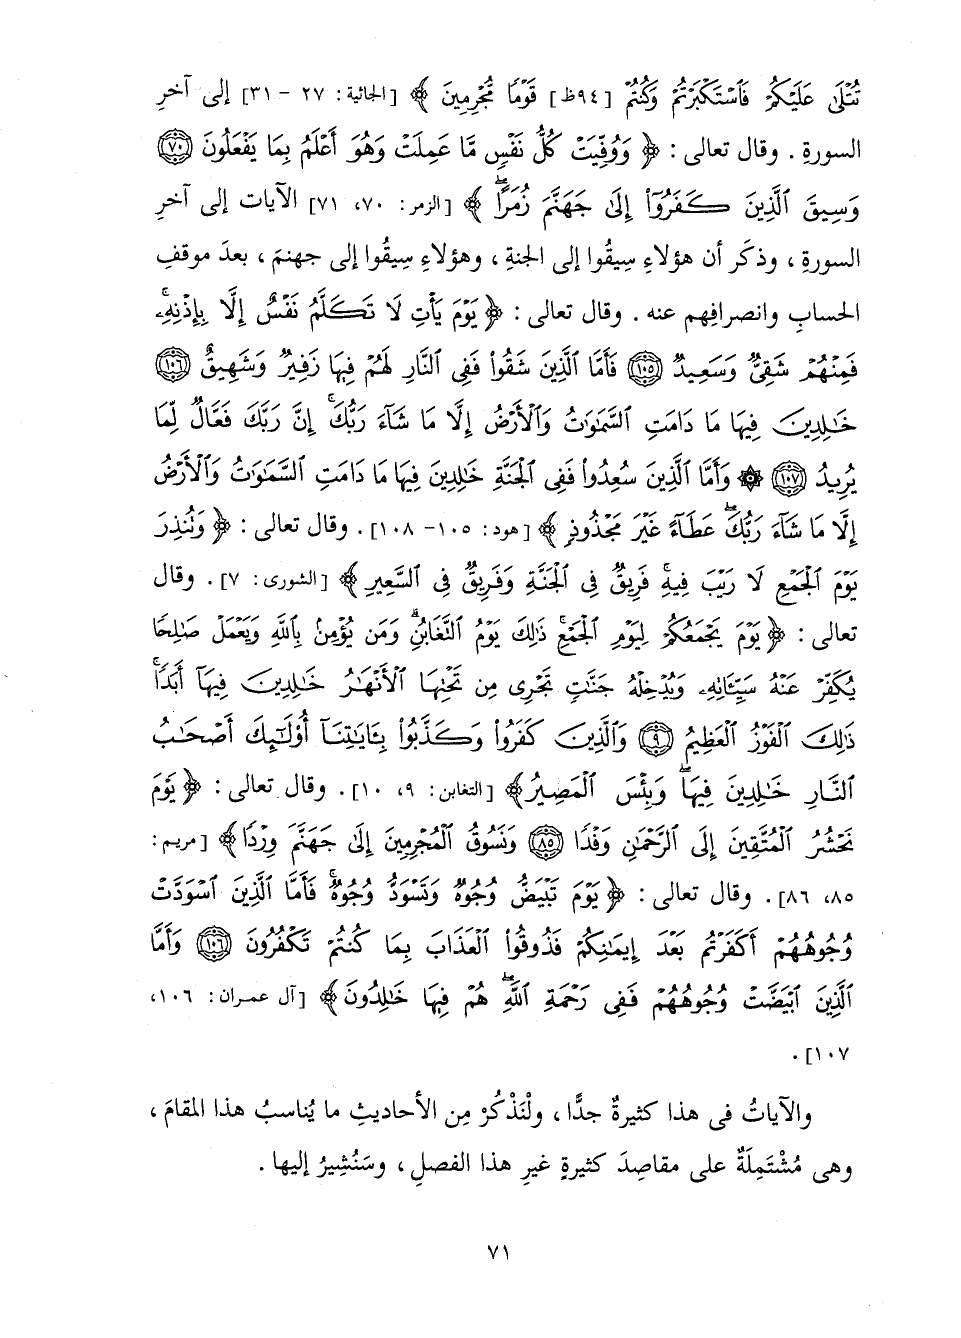 تُتْلَىٰ عَلَيْكُمْ فَٱسْتَكْبَرْتُمْ وَكُنتُمْ [٩٤ظ] قَوْمًا مُّجْرِمِينَ ﴾ [الجاثية: ٢٧ - ٣١] إلى آخرِ
السورةِ . وقال تعالى : ﴿ وَوُفِّيَتْ كُلُّ نَفْسٍ مَّا عَمِلَتْ وَهُوَ أَعْلَمُ بِمَا يَفْعَلُونَ ٧٠
وَسِيقَ ٱلَّذِينَ كَفَرُوٓا۟ إِلَىٰ جَهَنَّمَ زُمَرًا ۖ ﴾ [الزمر: ٧٠، ٧١] الآيات إلى آخرِ
السورةِ ، وذكَر أن هؤلاءِ سِيقُوا إلى الجنةِ ، وهؤلاءِ سِيقُوا إلى جهنمَ ، بعدَ موقفِ
الحسابِ وانصرافِهم عنه . وقال تعالى : ﴿ يَوْمَ يَأْتِ لَا تَكَلَّمُ نَفْسٌ إِلَّا بِإِذْنِهِۦ ۚ
فَمِنْهُمْ شَقِىٌّ وَسَعِيدٌ ١٠٥ فَأَمَّا ٱلَّذِينَ شَقُوا۟ فَفِى ٱلنَّارِ لَهُمْ فِيهَا زَفِيرٌ وَشَهِيقٌ ١٠٦
خَٰلِدِينَ فِيهَا مَا دَامَتِ ٱلسَّمَٰوَٰتُ وَٱلْأَرْضُ إِلَّا مَا شَآءَ رَبُّكَ ۚ إِنَّ رَبَّكَ فَعَّالٌ لِّمَا
يُرِيدُ ١٠٧ ۞ وَأَمَّا ٱلَّذِينَ سُعِدُوا۟ فَفِى ٱلْجَنَّةِ خَٰلِدِينَ فِيهَا مَا دَامَتِ ٱلسَّمَٰوَٰتُ وَٱلْأَرْضُ
إِلَّا مَا شَآءَ رَبُّكَ ۖ عَطَآءً غَيْرَ مَجْذُوذٍ ﴾ [هود: ١٠٥- ١٠٨] . وقال تعالى : ﴿ وَتُنذِرَ
يَوْمَ ٱلْجَمْعِ لَا رَيْبَ فِيهِ ۚ فَرِيقٌ فِى ٱلْجَنَّةِ وَفَرِيقٌ فِى ٱلسَّعِيرِ ﴾ [الشورى: ٧] . وقال
تعالى : ﴿ يَوْمَ يَجْمَعُكُمْ لِيَوْمِ ٱلْجَمْعِ ۖ ذَٰلِكَ يَوْمُ ٱلتَّغَابُنِ ۗ وَمَن يُؤْمِنۢ بِٱللَّهِ وَيَعْمَلْ صَٰلِحًا
يُكَفِّرْ عَنْهُ سَيِّـَٔاتِهِۦ وَيُدْخِلْهُ جَنَّٰتٍ تَجْرِى مِن تَحْتِهَا ٱلْأَنْهَٰرُ خَٰلِدِينَ فِيهَآ أَبَدًا ۚ
ذَٰلِكَ ٱلْفَوْزُ ٱلْعَظِيمُ ٩ وَٱلَّذِينَ كَفَرُوا۟ وَكَذَّبُوا۟ بِـَٔايَٰتِنَآ أُو۟لَٰٓئِكَ أَصْحَٰبُ
ٱلنَّارِ خَٰلِدِينَ فِيهَا ۖ وَبِئْسَ ٱلْمَصِيرُ ﴾ [التغابن: ٩، ١٠] . وقال تعالى : ﴿ يَوْمَ
نَحْشُرُ ٱلْمُتَّقِينَ إِلَى ٱلرَّحْمَٰنِ وَفْدًا ٨٥ وَنَسُوقُ ٱلْمُجْرِمِينَ إِلَىٰ جَهَنَّمَ وِرْدًا ﴾ [مريم:
٨٥، ٨٦] . وقال تعالى : ﴿ يَوْمَ تَبْيَضُّ وُجُوهٌ وَتَسْوَدُّ وُجُوهٌ ۚ فَأَمَّا ٱلَّذِينَ ٱسْوَدَّتْ
وُجُوهُهُمْ أَكَفَرْتُم بَعْدَ إِيمَٰنِكُمْ فَذُوقُوا۟ ٱلْعَذَابَ بِمَا كُنتُمْ تَكْفُرُونَ ١٠٦ وَأَمَّا
ٱلَّذِينَ ٱبْيَضَّتْ وُجُوهُهُمْ فَفِى رَحْمَةِ ٱللَّهِ ۖ هُمْ فِيهَا خَٰلِدُونَ ﴾ [آل عمران: ١٠٦،
١٠٧] .
والآياتُ فى هذا كثيرةٌ جدًّا ، ولْنَذْكُرْ مِن الأحاديثِ ما يُناسبُ هذا المقامَ ،
وهى مُشْتَمِلَةٌ على مقاصِدَ كثيرةٍ غيرِ هذا الفصلِ ، وسَنُشِيرُ إليها .
٧١